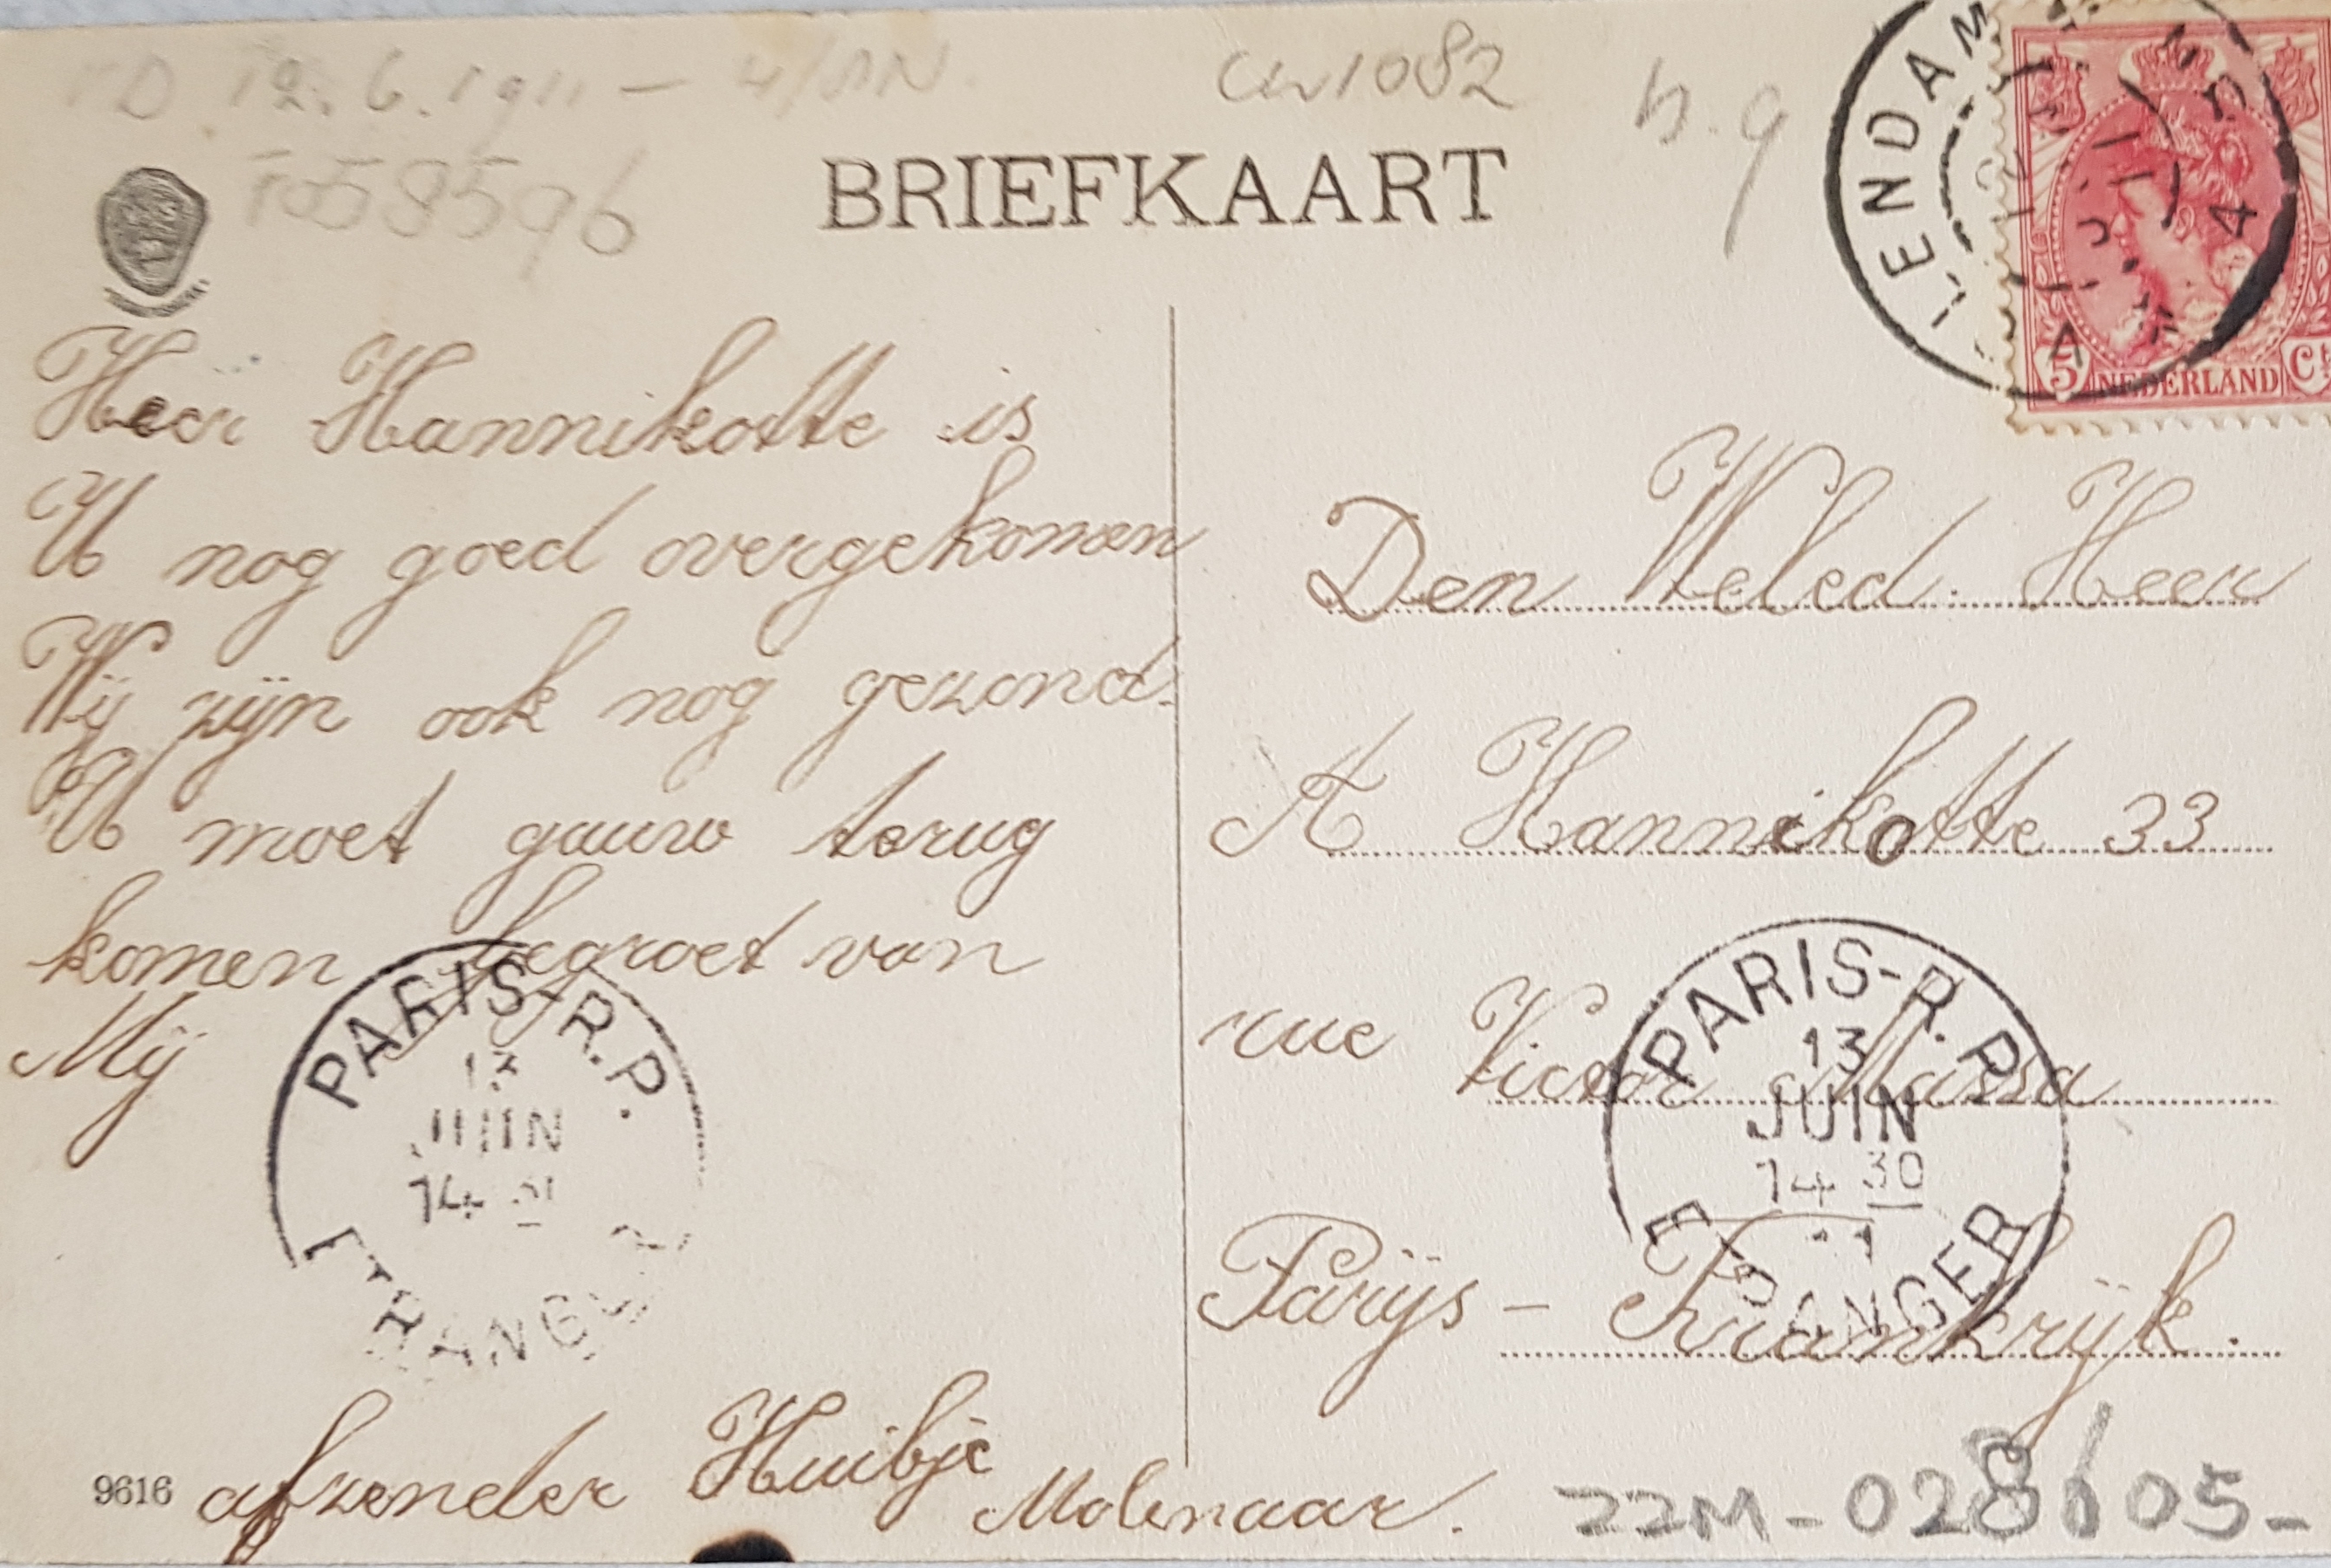 12.6.1911 —
CW1082
b.9
58596
BRIEFKAART
LENDAM
12 JUN 11
4-5 N
5 NEDERLAND Ct
Heer Hannikotte is
U nog goed overgekomen
Wij zijn ook nog gezond.
U moet gauw terug
komen begroet van
Mij
Den Weled. Heer
A Hannikotte 33
rue Victor Massa
Parijs - Frankrijk.
PARIS-R.P.
13
JUIN
14 30
11
ETRANGER
PARIS-R.P.
13
JUIN
14 30
ETRANGER
9616
afzender Huibje Molenaar.
22M-028605-